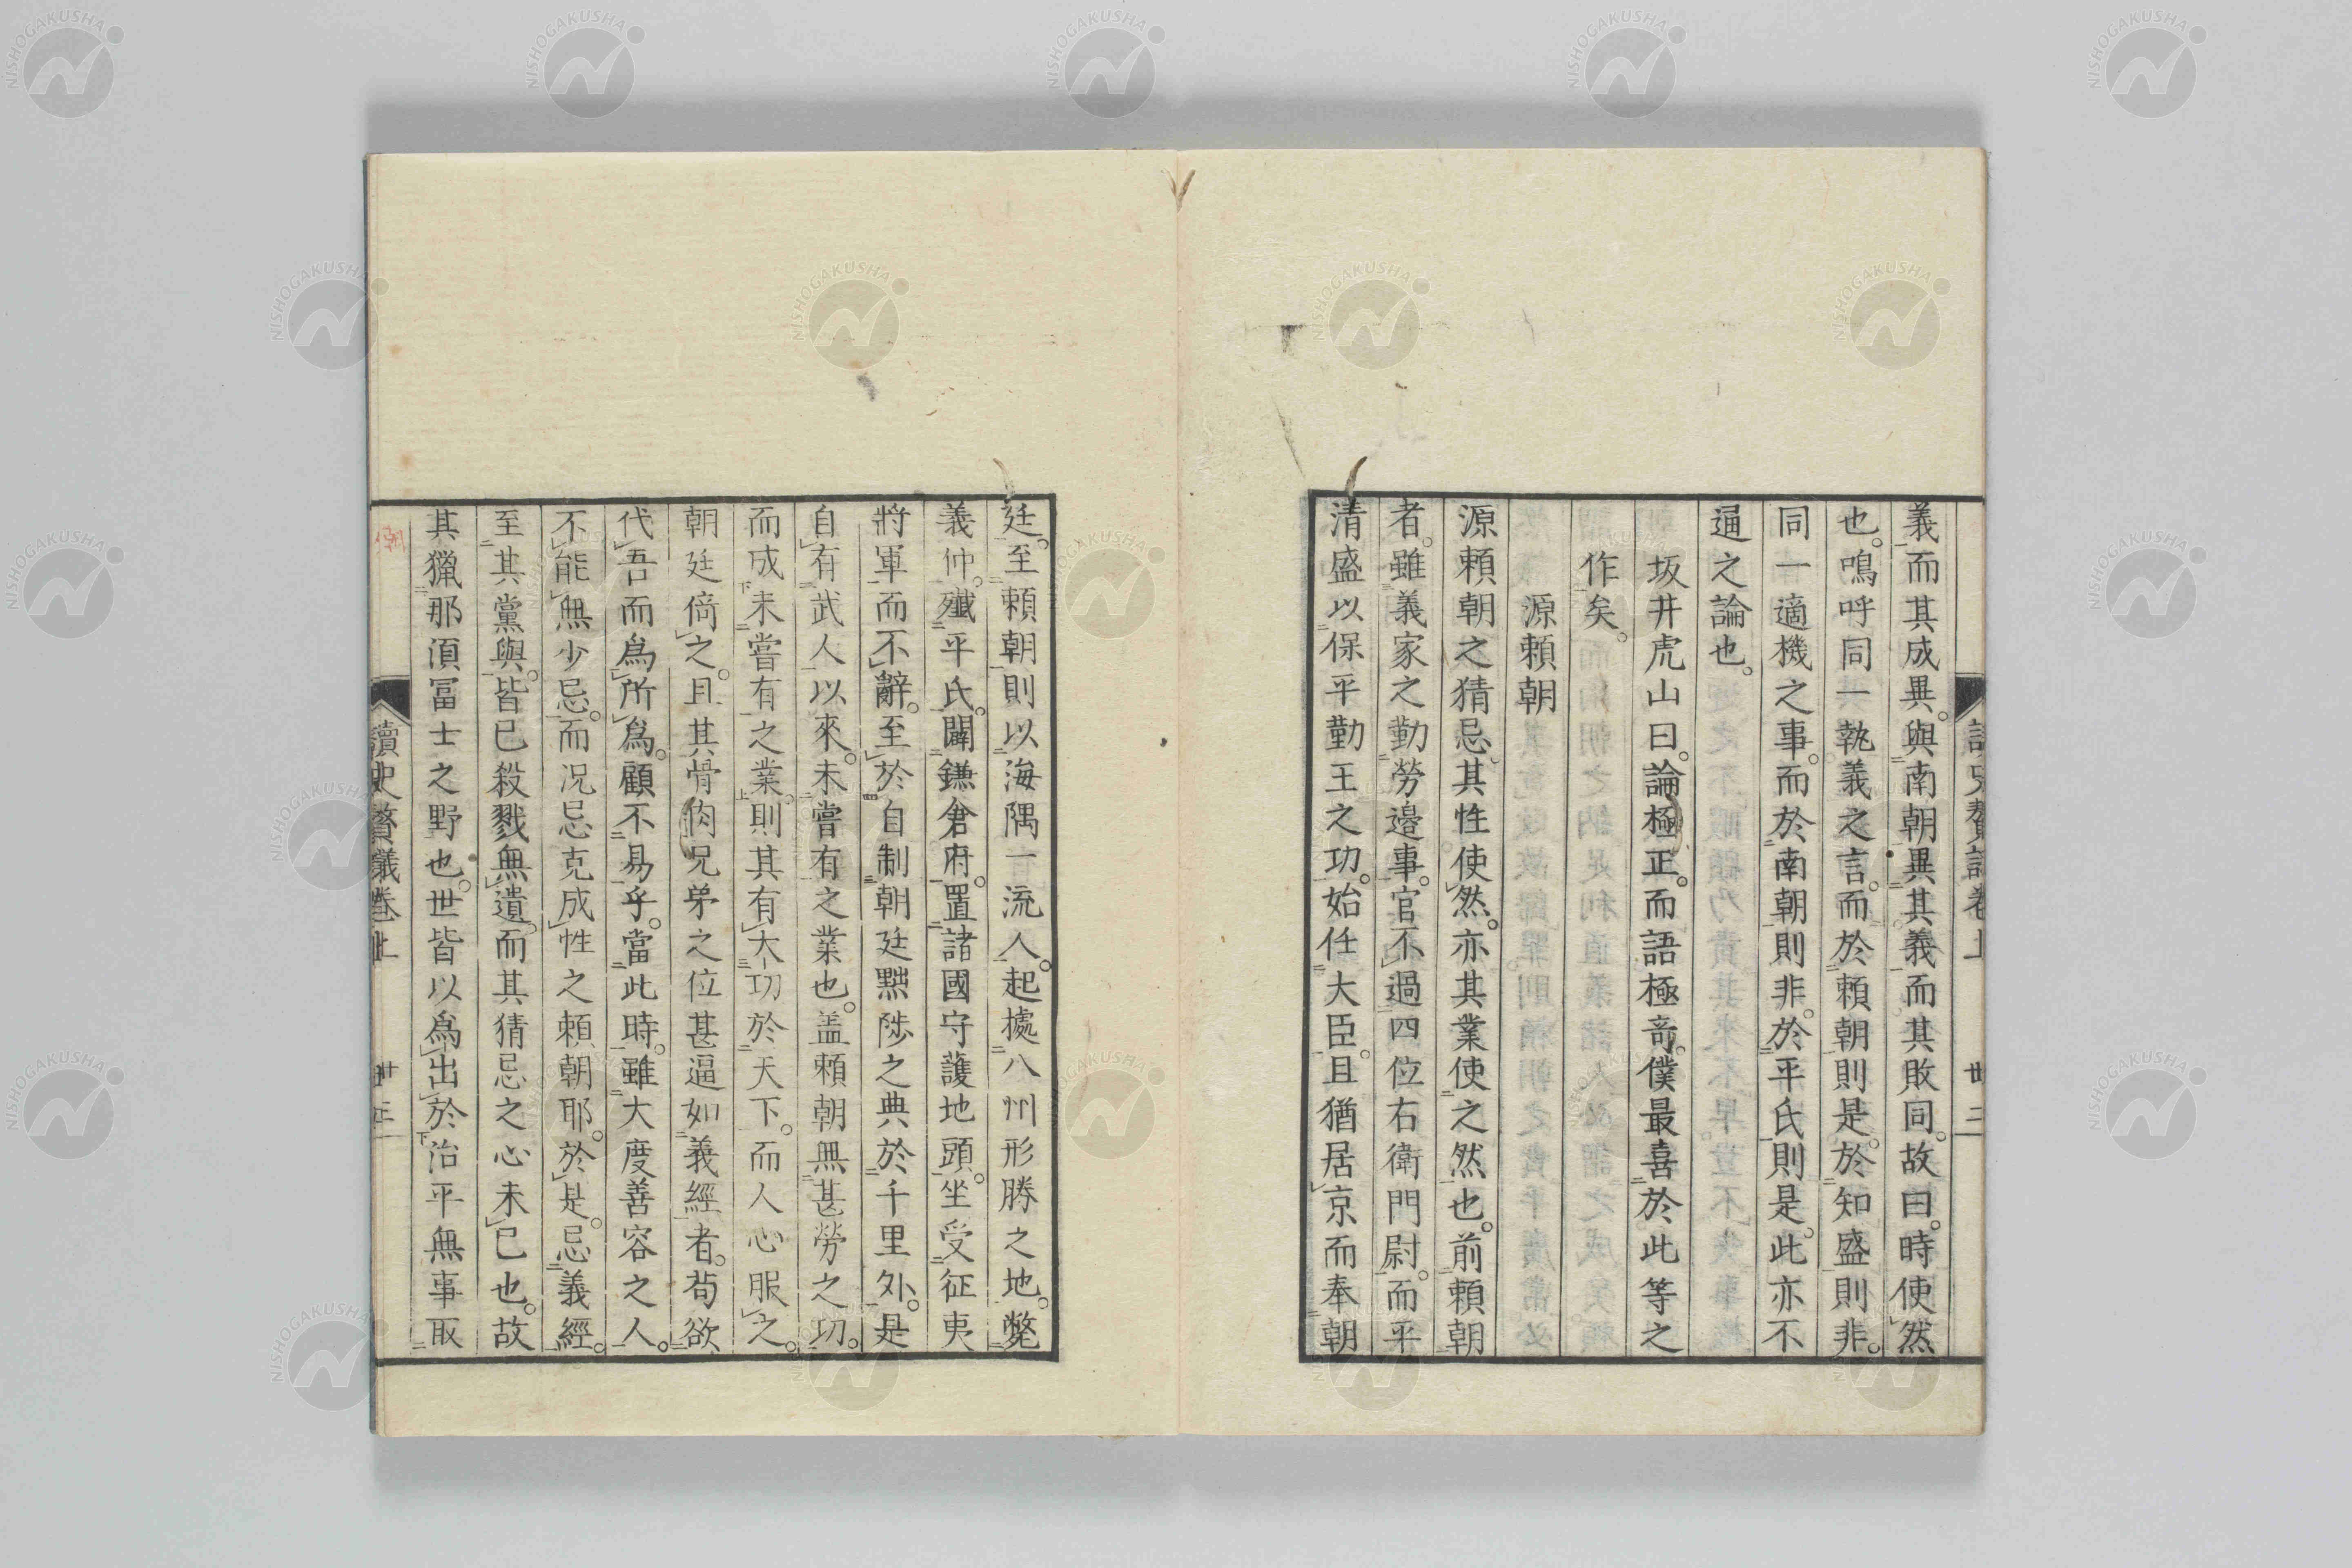 義而其成異。與南朝異其義而其敗同。故曰。時使然
也。鳴呼同一執義之言。而於賴朝則是。於知盛則非。
同一適機之事。而於南朝則非。於平氏則是。此亦不
通之論也。
坂井虎山曰。論極正。而語極奇。僕最喜於此等之
作矣。
源賴朝
源賴朝之猜忌。其性使然。亦其業使之然也。前賴朝
者。雖義家之勤勞邊事。官不過四位右衛門尉。而平
清盛以保平勤王之功。始任大臣。且猶居京而奉朝
廷。至賴朝則以海隅一流人。起據八州形勝之地。斃
義仲。殲平氏。闢鎌倉府。置諸國守護地頭。坐受征夷
將軍而不辭。至於自制朝廷黜陟之典於千里外。是
自有武人以來。未嘗有之業也。盖賴朝無甚勞之功。
而成未嘗有之業。則其有大功於天下。而人心服之。
朝廷倚之。且其骨肉兄弟之位甚逼如義經者。苟欲
代吾而爲所爲。顧不易乎。當此時。雖大度善容之人。
不能無少忌。而况忌克成性之賴朝耶。於是。忌義經。
至其黨與。皆已殺戮無遺。而其猜忌之心未已也。故
其獵那須冨士之野也。世皆以爲出於治平無事取
讀史贅議卷上
卅三
NISHOGAKUSHA